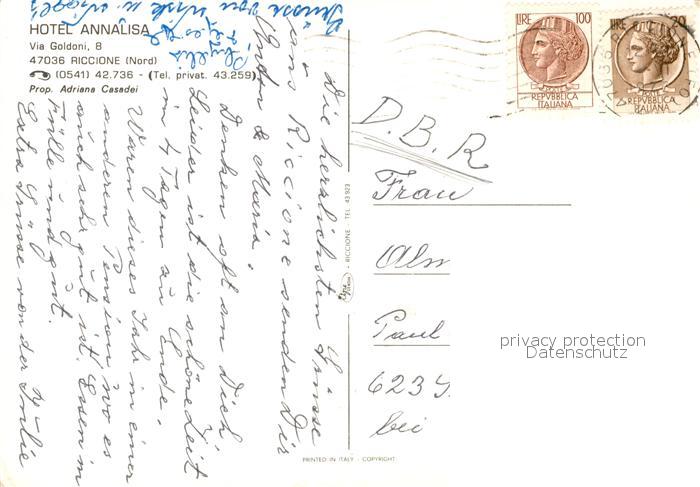 HOTEL ANNALISA
Via Goldoni, 8
47036 RICCIONE (Nord)
(0541) 42.736 - (Tel. privat. 43.259)
Prop. Adriana Casadei
Die herzlichsten Grüsse
aus Riccione senden Dir
Anton & Maria.
Denken oft an Dich,
Leider ist die schöne Zeit
in 4 Tagen zu Ende.
Waren dieses Jahr in einer
anderen Pension wo es
auch sehr gut ist. Essen in
Fülle und gut.
Extra Grüsse von der
Grüsse von
RICCIONE - TEL. 43923
PRINTED IN ITALY - COPYRIGHT
LIRE 100
REPVBBLICA
ITALIANA
LIRE 20
REPVBBLICA
ITALIANA
D.B.R
Frau
Alm
Paul
privacy protection
Datenschutz
623
bei